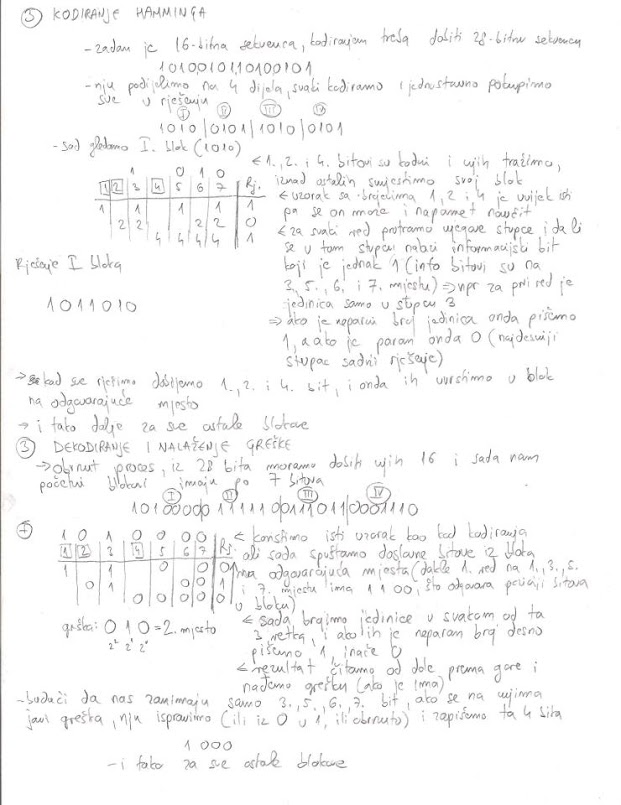 ③ KODIRANJE HAMMINGA
- zadan je 16-bitna sekvenca, kodiranjem treba dobiti 28-bitnu sekvencu
1010010110100101
- nju podijelimo na 4 dijela, svaki kodiramo i jednostavno pokupimo
sve u rješenju
I II III IV
1010|0101|1010|0101
- sad gledamo I. blok (1010)
1 0 1 0
1 2 3 4 5 6 7 Rj.
1 1 1 1 1
2 2 2 2 0
4 4 4 4 1
← 1., 2. i 4. bitovi su kodni i njih tražimo,
iznad ostalih smjestimo svoj blok
← uzorak sa brojevima 1, 2 i 4 je uvijek isti
pa se on može i napamet naučit
← za svaki red promatramo njegove stupce i da li
se u tom stupcu nalazi informacijski bit
koji je jednak 1 (info bitovi su na
3., 5., 6. i 7. mjestu) ⇒ npr za prvi red je
jedinica samo u stupcu 3
⇒ ako je neparni broj jedinica onda pišemo
1, a ako je paran onda 0 (najdesniji
stupac sadrži rješenje)
Rješenje I bloka
1011010
→ kad sve riješimo dobijemo 1., 2. i 4. bit, i onda ih uvrstimo u blok
na odgovarajuće mjesto
→ i tako dalje za sve ostale blokove
③ DEKODIRANJE I NALAŽENJE GREŠKE
→ obrnut proces, iz 28 bita moramo dobiti njih 16 i sada nam
početni blokovi imaju po 7 bitova
I II III IV
1010000|0111110|0111011|0001110
I
1 0 1 0 0 0 0
1 2 3 4 5 6 7 Rj.
1 1 0 0 0
0 1 0 0 1
0 0 0 0 0
← koristimo isti uzorak kao kod kodiranja
ali sada spuštamo doslovne bitove iz bloka
na odgovarajuća mjesta (dakle 1. red na 1., 3., 5.
i 7. mjestu ima 1100, što odgovara poziciji bitova
u bloku)
greška: 0 1 0 = 2. mjesto
2² 2¹ 2⁰
← sada brojimo jedinice u svakom od ta
3 retka, i ako ih je neparan broj desno
pišemo 1, inače 0
← rezultat čitamo od dole prema gore i
nađemo grešku (ako je ima)
- budući da nas zanimaju samo 3., 5., 6., 7. bit, ako se na njima
javi greška, nju ispravimo (ili iz 0 u 1, ili obrnuto) i zapišemo ta 4 bita
1000
- i tako za sve ostale blokove